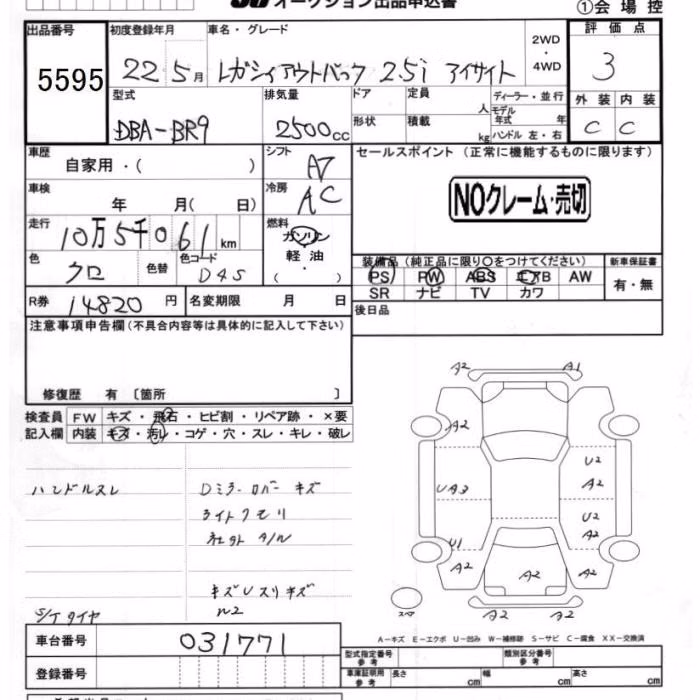 オークション出品申込書
①会場控
出品番号 初度登録年月 車名・グレード 評価点
5595 22年5月 レガシィアウトバック 2.5i アイサイト 2WD・4WD 3
型式 排気量 ドア 定員 人 ディーラー・並行 外装 内装
DBA-BR9 2500cc 形状 積載 kg モデル年式 年 ハンドル 左・右 C C
車歴 シフト セールスポイント (正常に機能するものに限ります)
自家用・( ) AT
車検 冷房 NOクレーム・売切
年 月( 日) AC
走行 燃料
10万5千061km ガソリン
軽油
( )
色 色替 色コード 装備品 (純正品に限り○をつけてください) 新車保証書
クロ D4S PS PW ABS エアB AW 有・無
SR ナビ TV カワ
R券 14820円 名変期限 月 日 後日品
注意事項申告欄(不具合内容等は具体的に記入して下さい)
修復歴 有 〔箇所 〕
検査員 FW キズ・飛石・ヒビ割・リペア跡・×要
記入欄 内装 キズ・汚れ・コゲ・穴・スレ・キレ・破レ
ハンドルスレ Dミラーカバー キズ
ライトクモリ
キズUスリキズ
W2
S/Tタイヤ
A2 A1
A2
U2
UA3 A2
U2
A2
U1
A2 A2 A2
スペア
A2 A2
A-キズ E-エクボ U-凹み W-補修跡 S-サビ C-腐食 XX-交換済
車台番号 031771
型式指定番号参考 類別区分番号参考
登録番号 車庫証明用参考 長さ cm 幅 cm 高さ cm